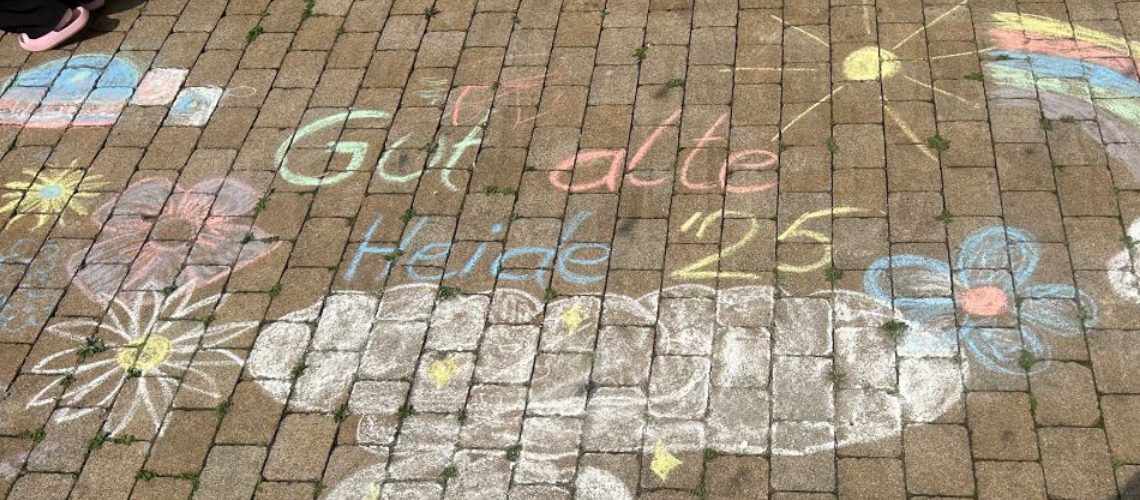 Gut alte
Heide '25